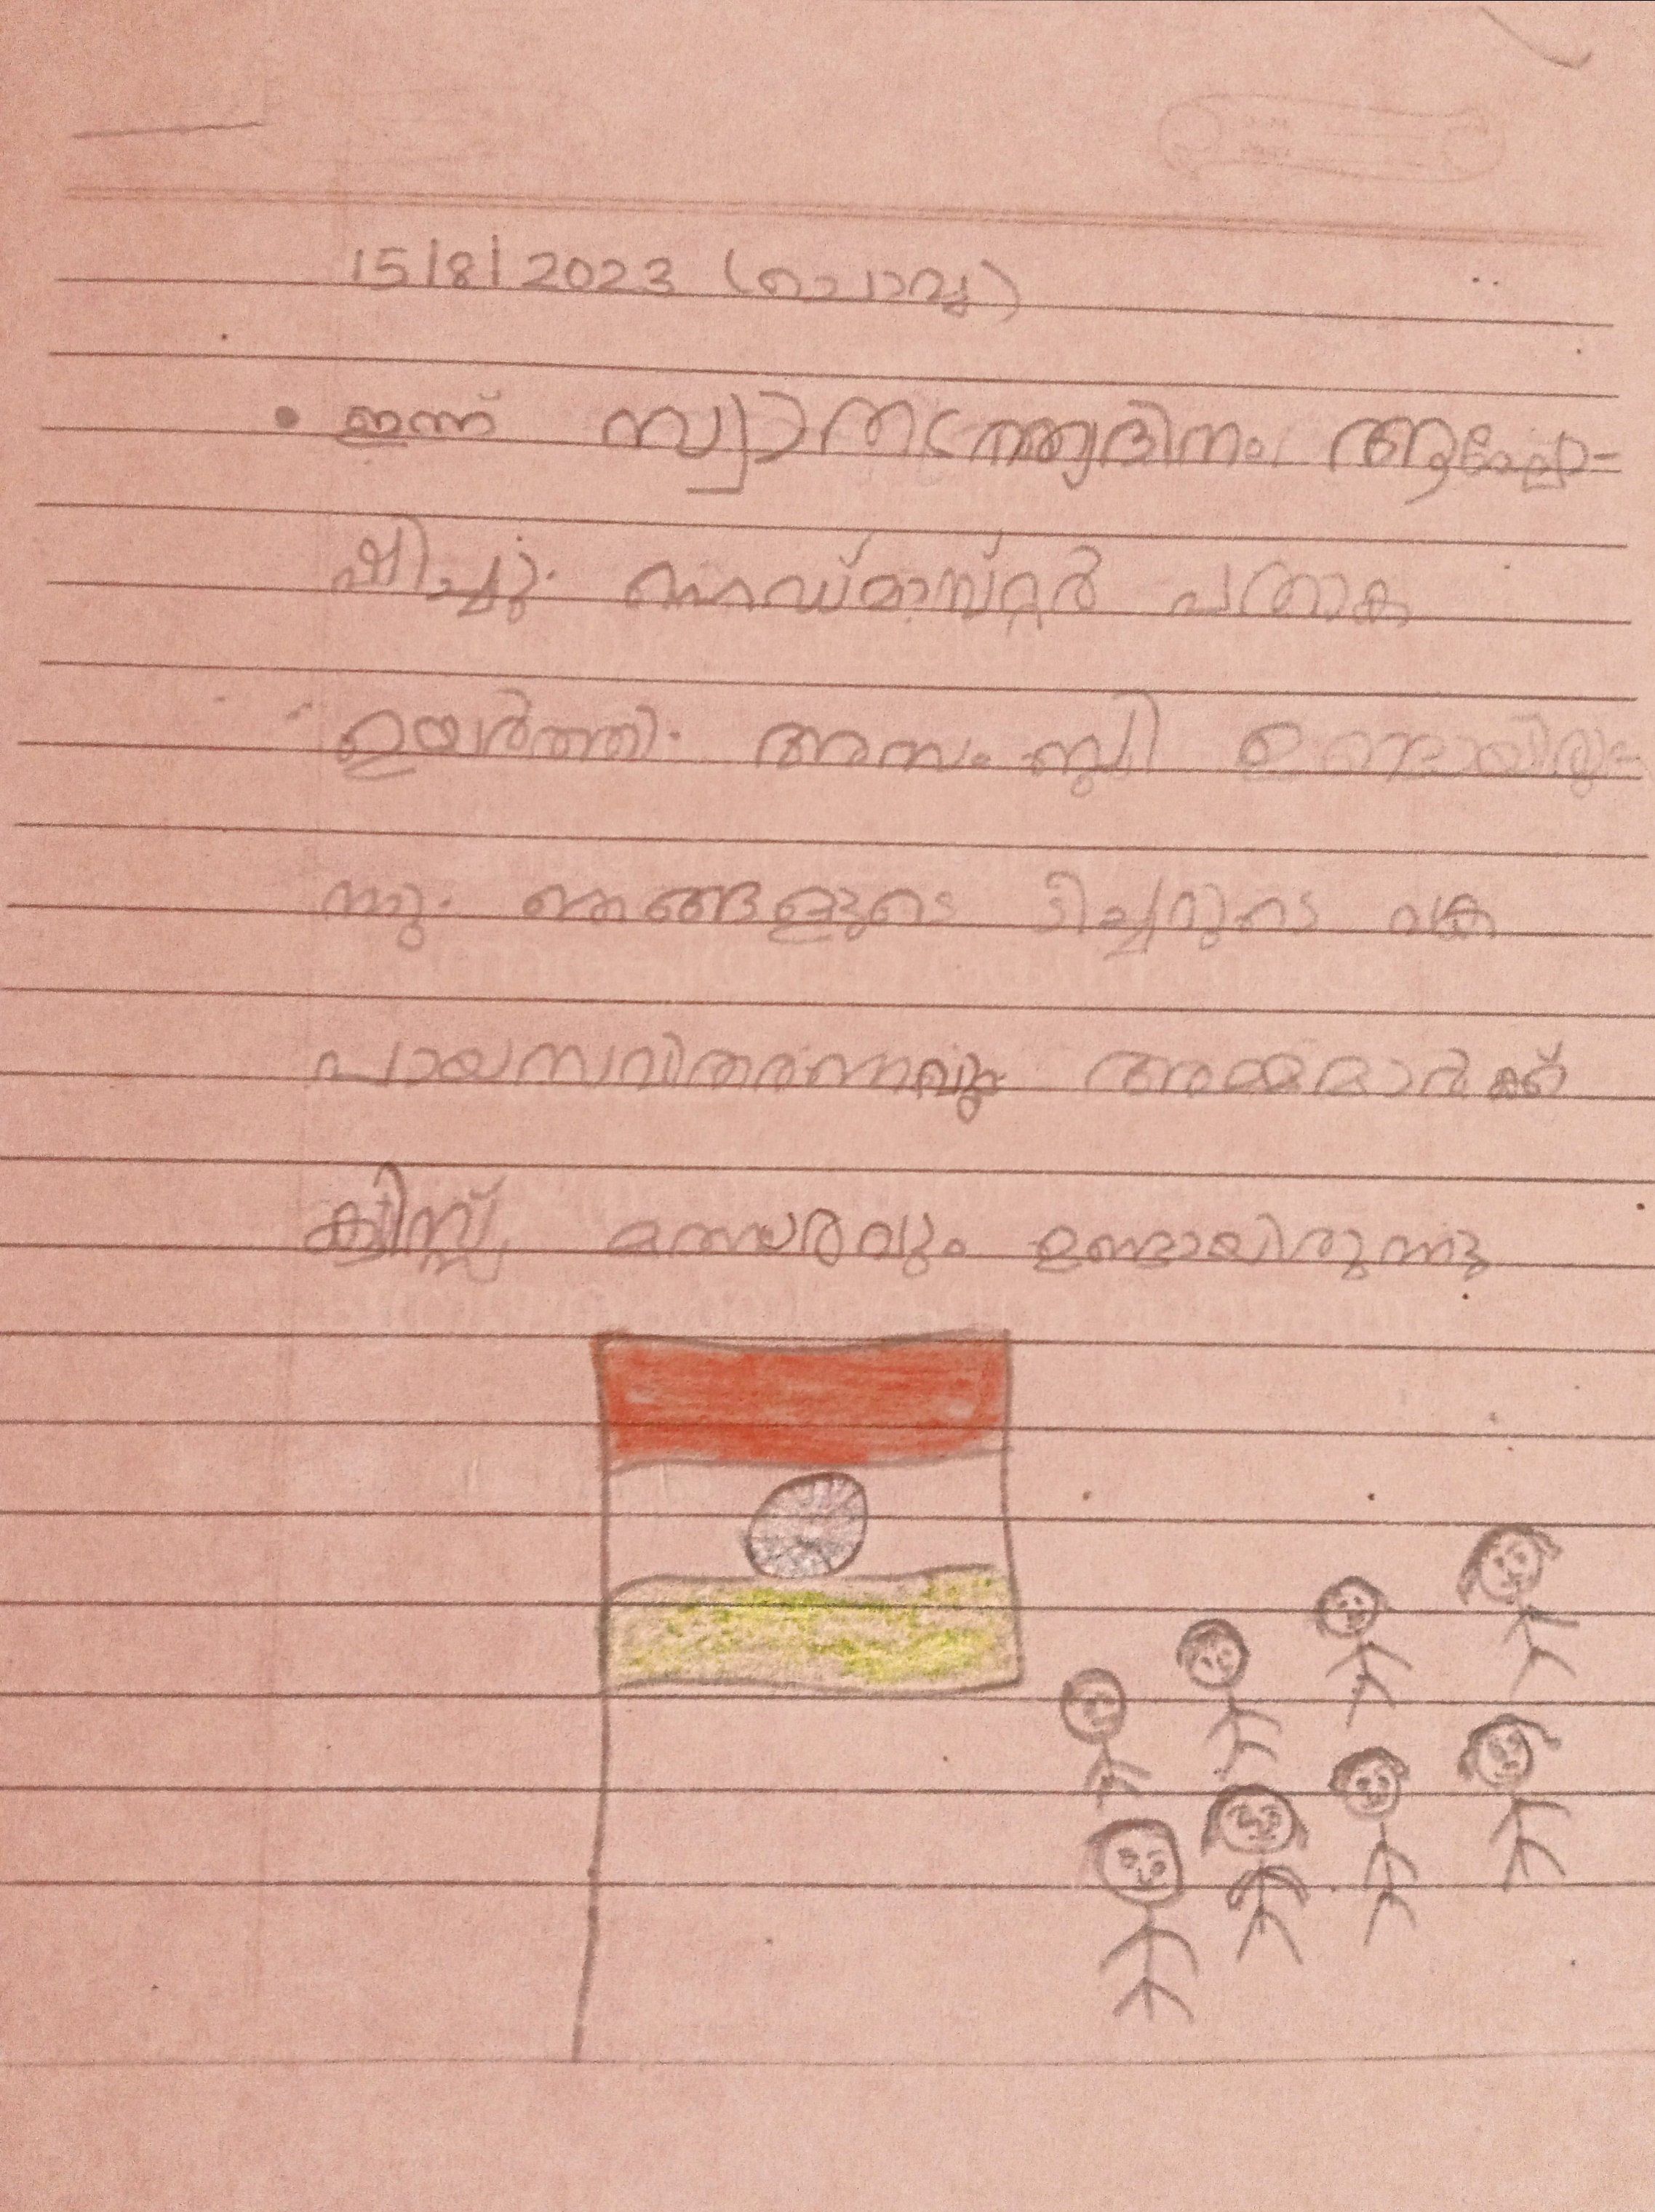 15/8/2023 (ചൊവ്വ)
• ഇന്ന് സ്വാതന്ത്ര്യദിനം ആഘോ-
ഷിച്ചു. ഹെഡ്മാസ്റ്റർ പതാക
ഉയർത്തി. അസംബ്ലി ഉണ്ടായിരു-
ന്നു. ഞങ്ങളുടെ ടീച്ചറുടെ വക
പായസവിതരണവും അമ്മമാർക്ക്
ക്വിസ്സ് മത്സരവും ഉണ്ടായിരുന്നു